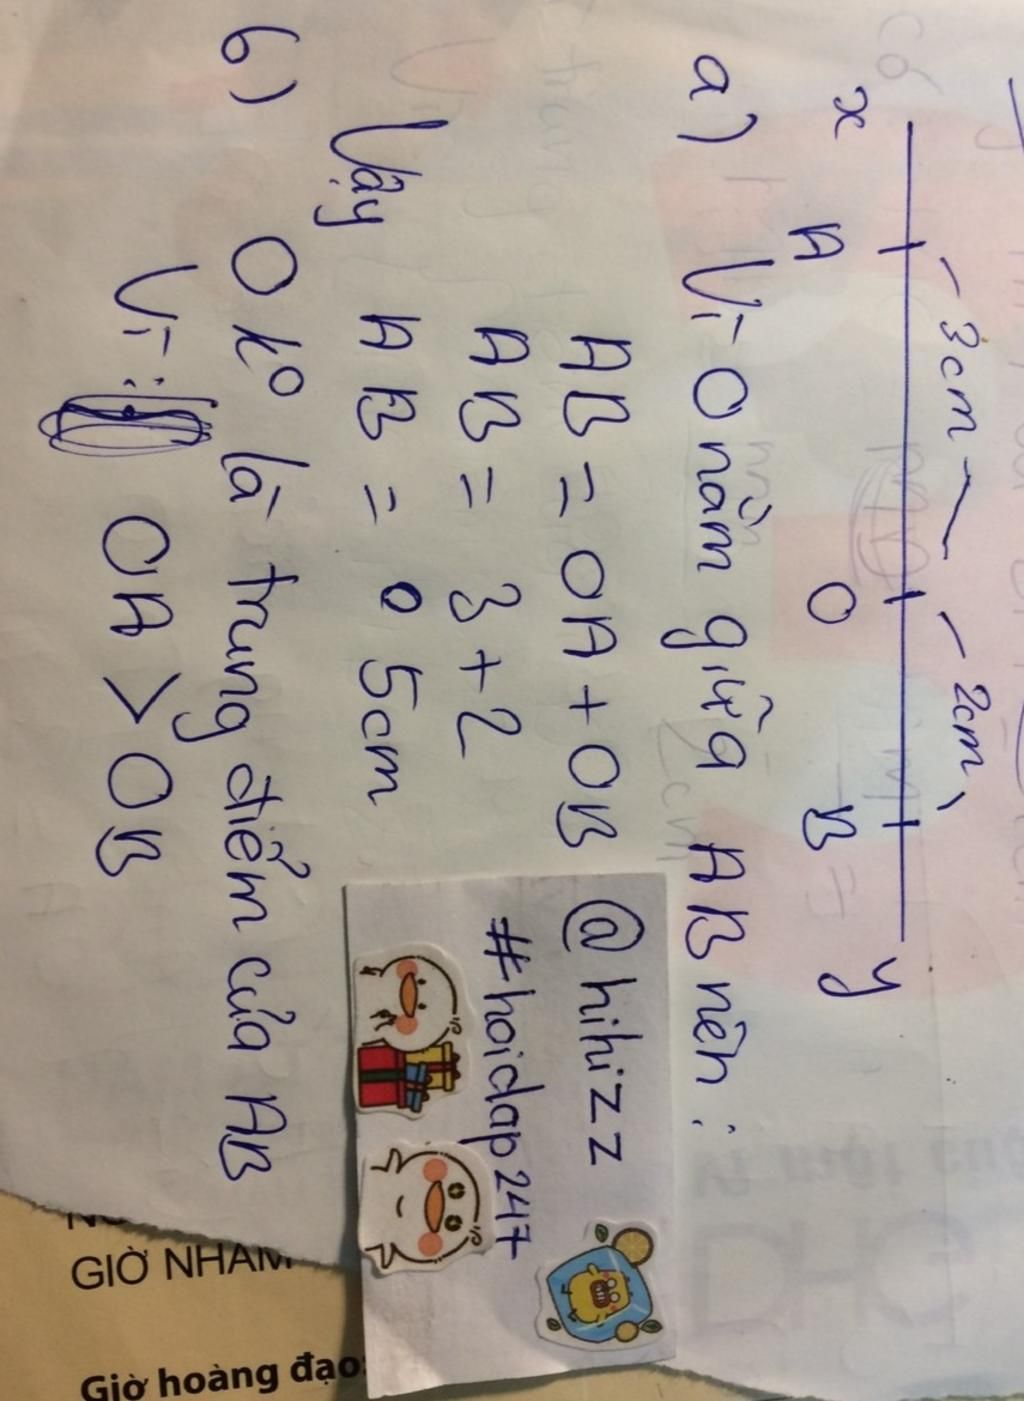 3cm 2cm
x A O B y
a) Vì O nằm giữa AB nên:
AB = OA + OB
AB = 3 + 2
Vậy AB = 5cm
b) O ko là trung điểm của AB
Vì: OA > OB
@hihizz
#hoidap247
GIỜ NHÂM
Giờ hoàng đạo: